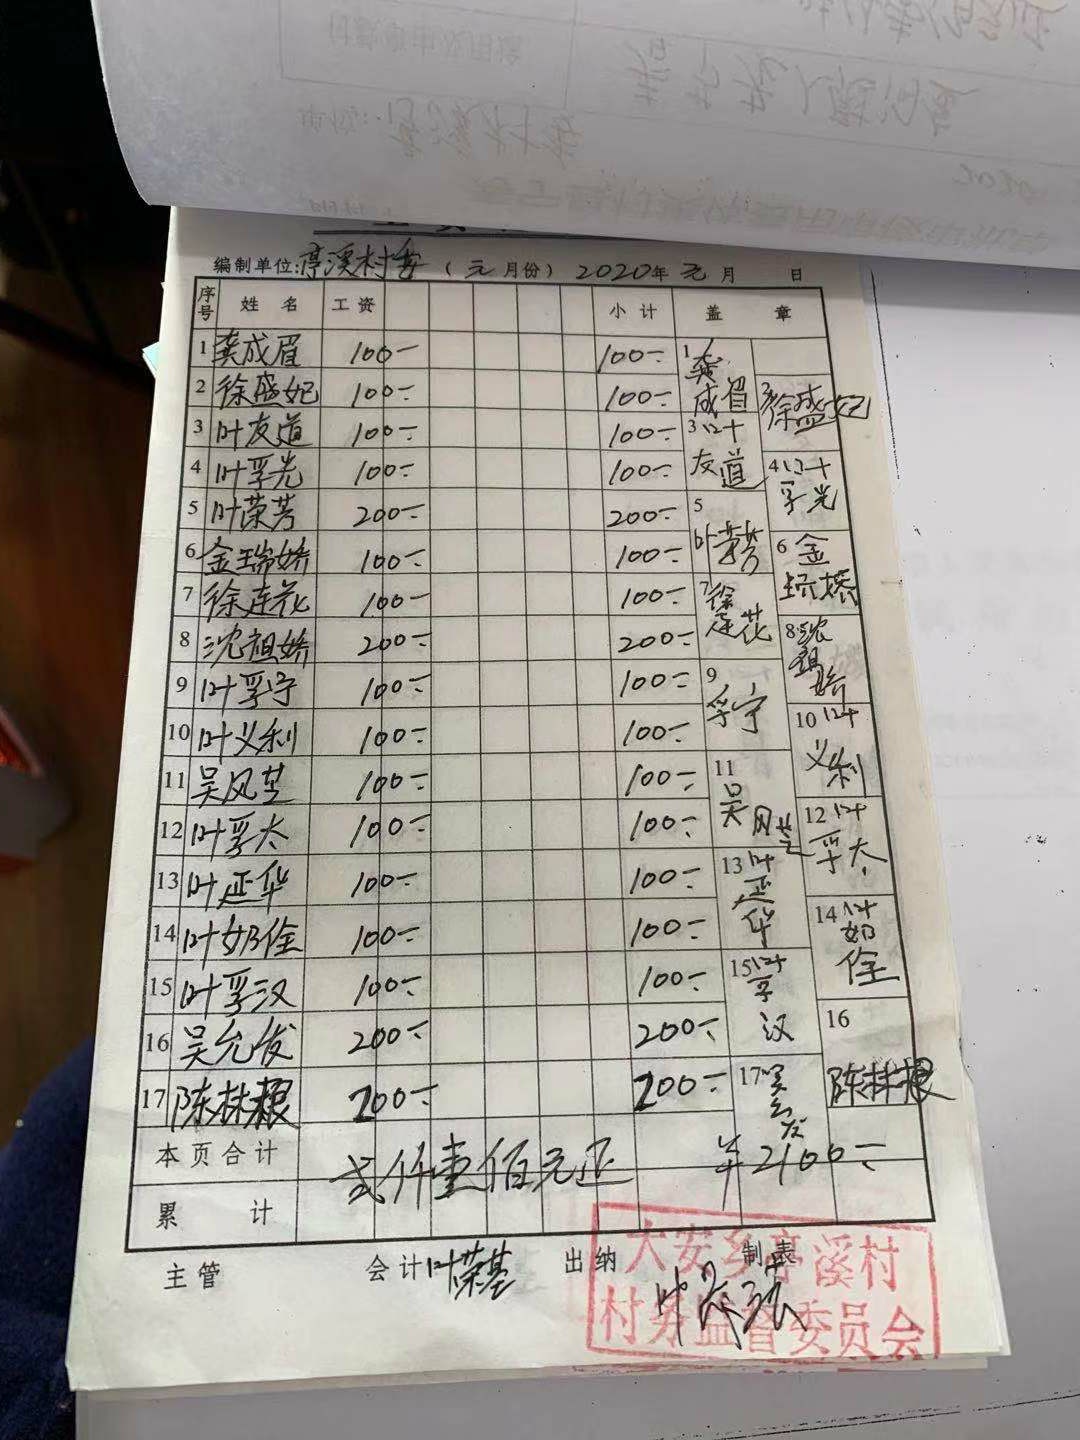 编制单位:亭溪村委 （元月份） 2020年元月 日
序号 姓名 工资 小计 盖章
1 龚成眉 100- 100-
2 徐盛妃 100- 100-
3 叶友道 100- 100-
4 叶孚光 100- 100-
5 叶荣芳 200- 200-
6 金瑞娇 100- 100-
7 徐连花 100- 100-
8 沈祖娇 200- 200-
9 叶孚宁 100- 100-
10 叶义利 100- 100-
11 吴风芝 100- 100-
12 叶孚太 100- 100-
13 叶延华 100- 100-
14 叶奶佺 100- 100-
15 叶孚汉 100- 100-
16 吴允发 200- 200-
17 陈林根 200- 200-
1 龚成眉
2 徐盛妃
3 叶友道
4 叶孚光
5 叶荣芳
6 金瑞娇
7 徐连花
8 沈祖娇
9 孚宁
10 叶义利
11 吴风芝
12 叶孚太
13 叶延华
14 叶奶佺
15 叶孚汉
16 陈林根
17 吴允发
本页合计 弍仟壹佰元正 ￥2100-
累计
主管 会计 叶荣基 出纳 制表
大安乡亭溪村
村务监督委员会